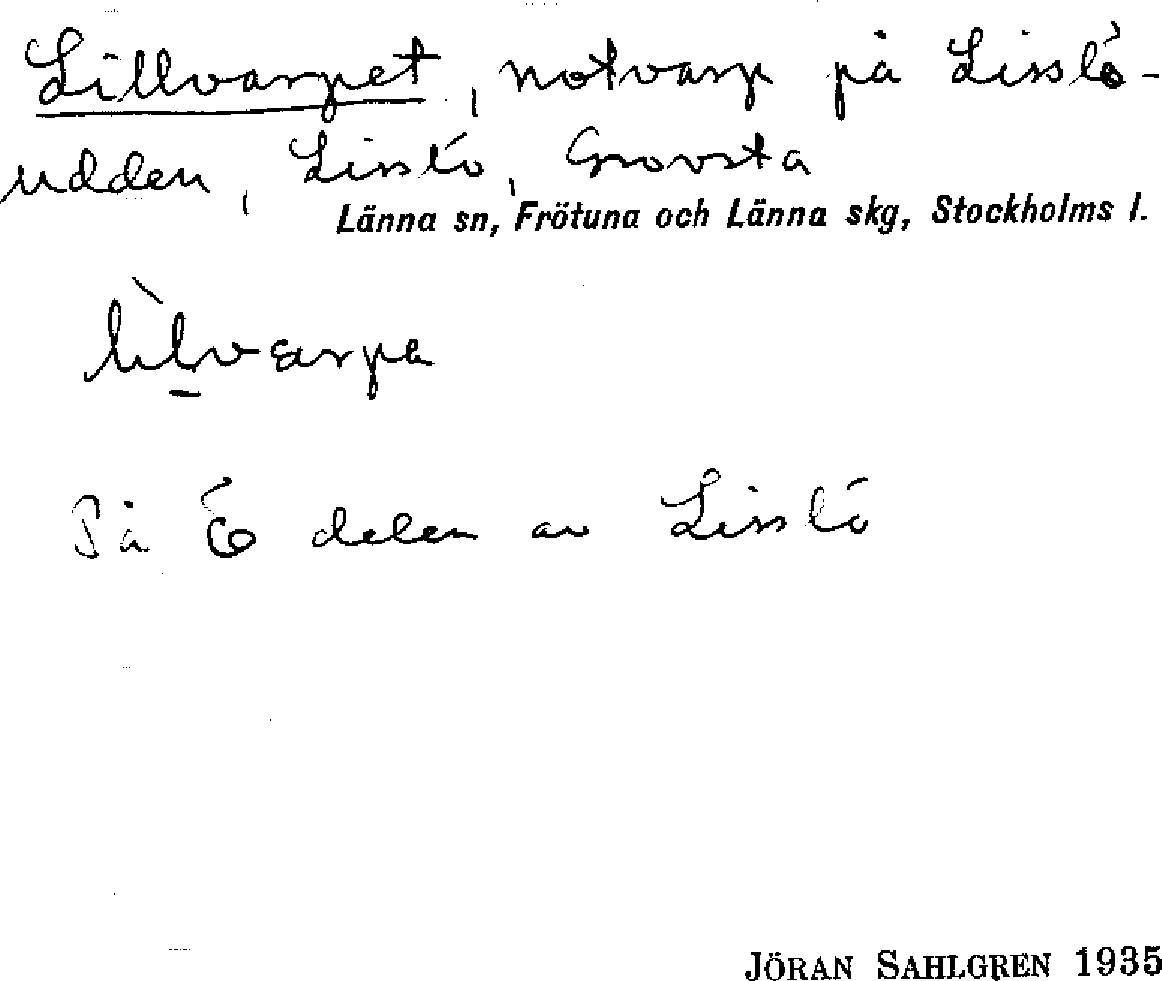 Lillvarpet, notvarp på Lisslö-
udden, Lisslö, Grovsta
Länna sn, Frötuna och Länna skg, Stockholms l.
På Ö delen av Lisslö
JÖRAN SAHLGREN 1935